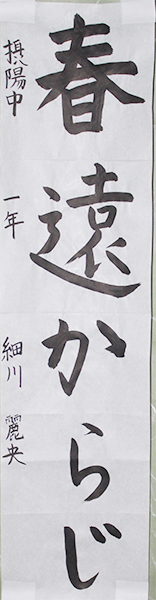 春遠からじ
摂陽中 一年 細川 麗央